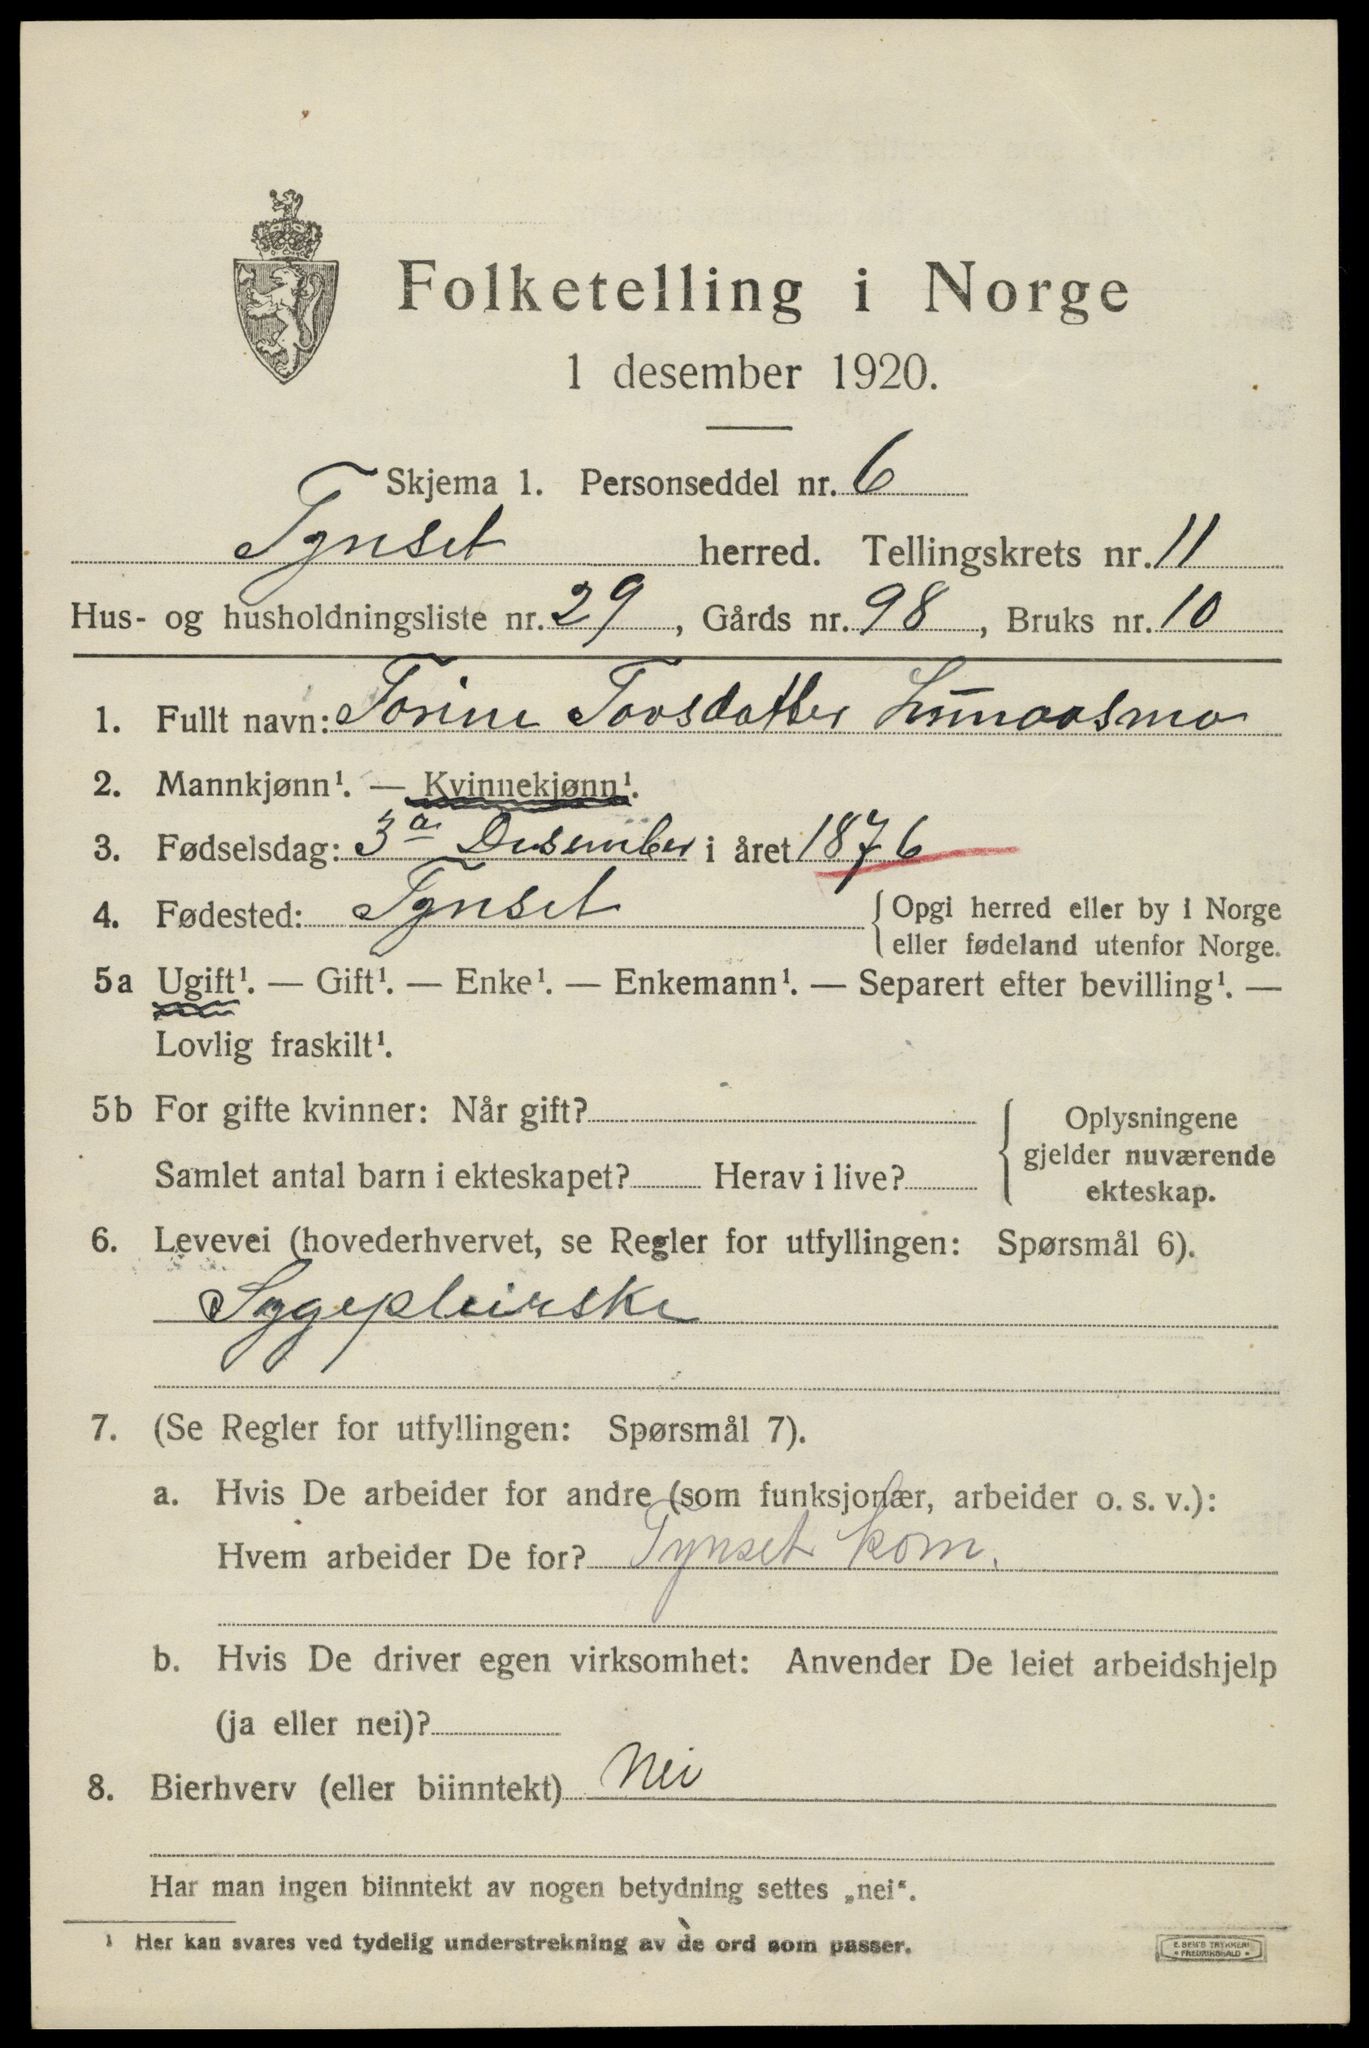 Folketelling i Norge
1 desember 1920.
Skjema 1. Personseddel nr. 6
Tynset herred. Tellingskrets nr. 11
Hus- og husholdningsliste nr. 29, Gårds nr. 98, Bruks nr. 10
1. Fullt navn: Torine Torsdatter
2. Mannkjønn¹. — Kvinnekjønn¹.
3. Fødselsdag: 3 Desember i året 1876
4. Fødested: Tynset {Opgi herred eller by i Norge
eller fødeland utenfor Norge.
5a Ugift¹. — Gift¹. — Enke¹. — Enkemann¹. — Separert efter bevilling¹. —
Lovlig fraskilt¹.
5b For gifte kvinner: Når gift?
Samlet antal barn i ekteskapet? Herav i live?
{ Oplysningene
gjelder nuværende
ekteskap.
6. Levevei (hovederhvervet, se Regler for utfyllingen: Spørsmål 6).
Sygepleierske
7. (Se Regler for utfyllingen: Spørsmål 7).
a. Hvis De arbeider for andre (som funksjonær, arbeider o. s. v.):
Hvem arbeider De for? Tynset kom.
b. Hvis De driver egen virksomhet: Anvender De leiet arbeidshjelp
(ja eller nei)?
8. Bierhverv (eller biinntekt) Nei
Har man ingen biinntekt av nogen betydning settes „nei“.
¹ Her kan svares ved tydelig understrekning av de ord som passer.
E. SEM'S TRYKKERI
• FREDRIKSHALD •